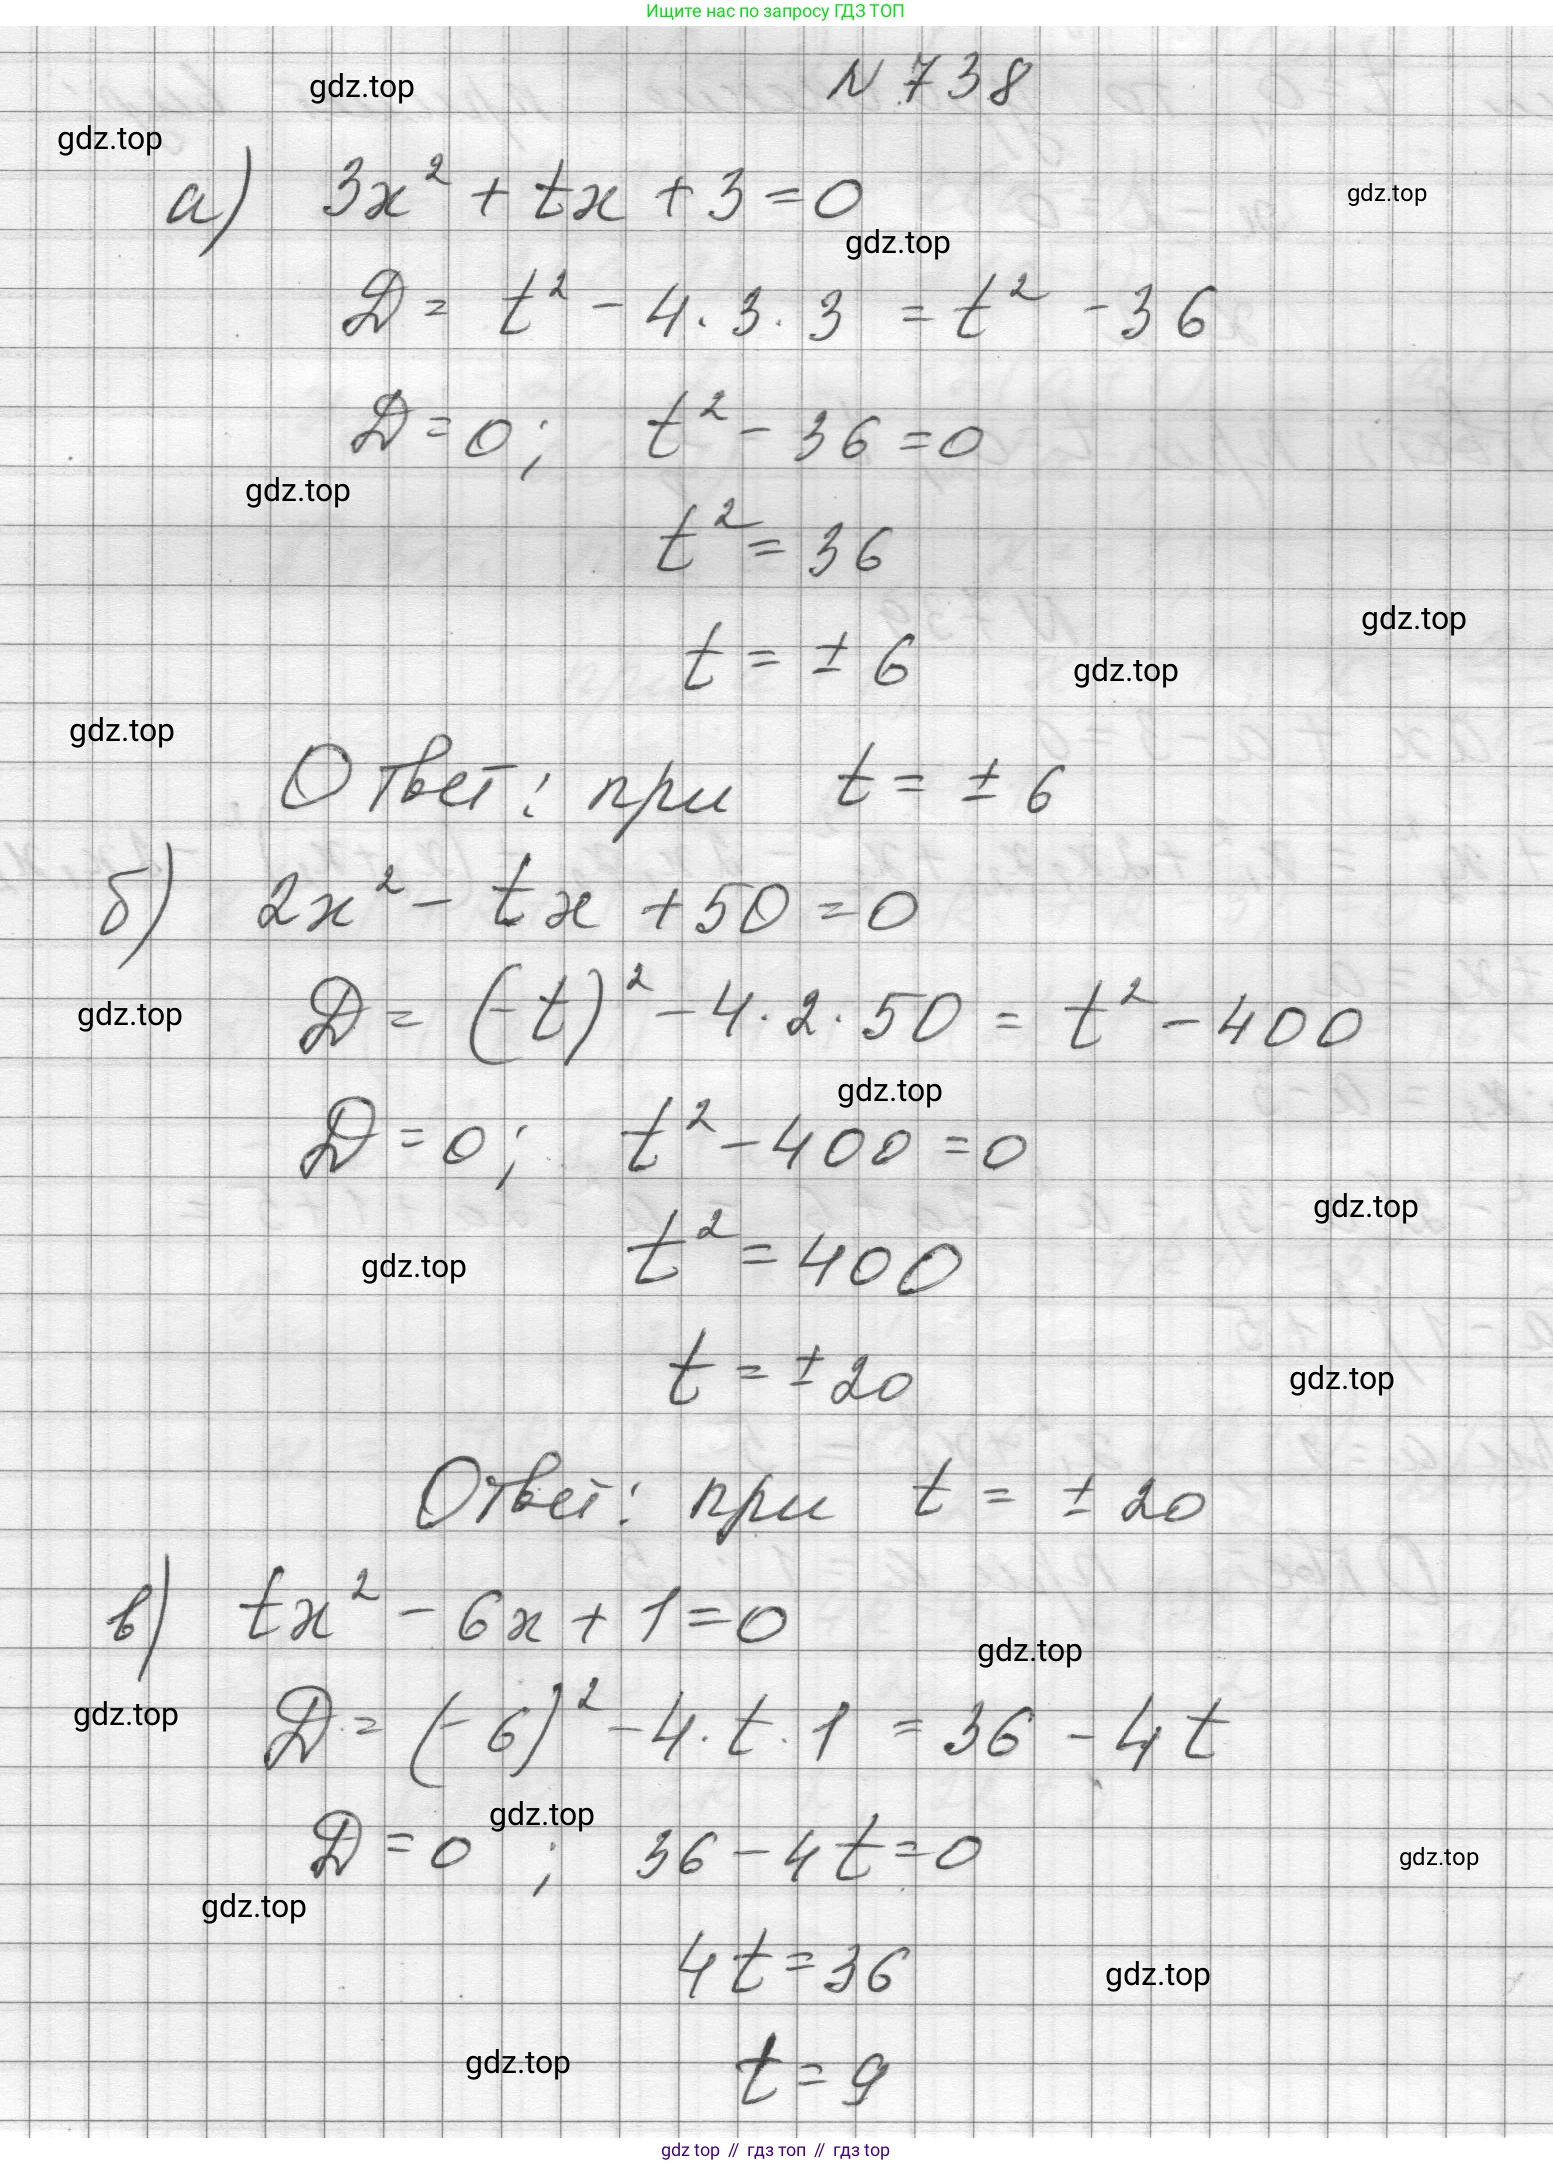 Ищите нас по запросу ГДЗ ТОП
N 738
gdz.top
gdz.top
а) 3x² + tx + 3 = 0
gdz.top
gdz.top
D = t² - 4 · 3 · 3 = t² - 36
D = 0; t² - 36 = 0
gdz.top
t² = 36
gdz.top
t = ± 6
gdz.top
gdz.top
Ответ: при t = ± 6
б) 2x² - tx + 50 = 0
gdz.top
D = (-t)² - 4 · 2 · 50 = t² - 400
gdz.top
D = 0; t² - 400 = 0
gdz.top
t² = 400
gdz.top
t = ± 20
gdz.top
Ответ: при t = ± 20
в) tx² - 6x + 1 = 0
gdz.top
gdz.top
D = (-6)² - 4 · t · 1 = 36 - 4t
gdz.top
D = 0 ; 36 - 4t = 0
gdz.top
gdz.top
4t = 36
gdz.top
gdz.top
t = 9
gdz top // гдз топ // гдз top